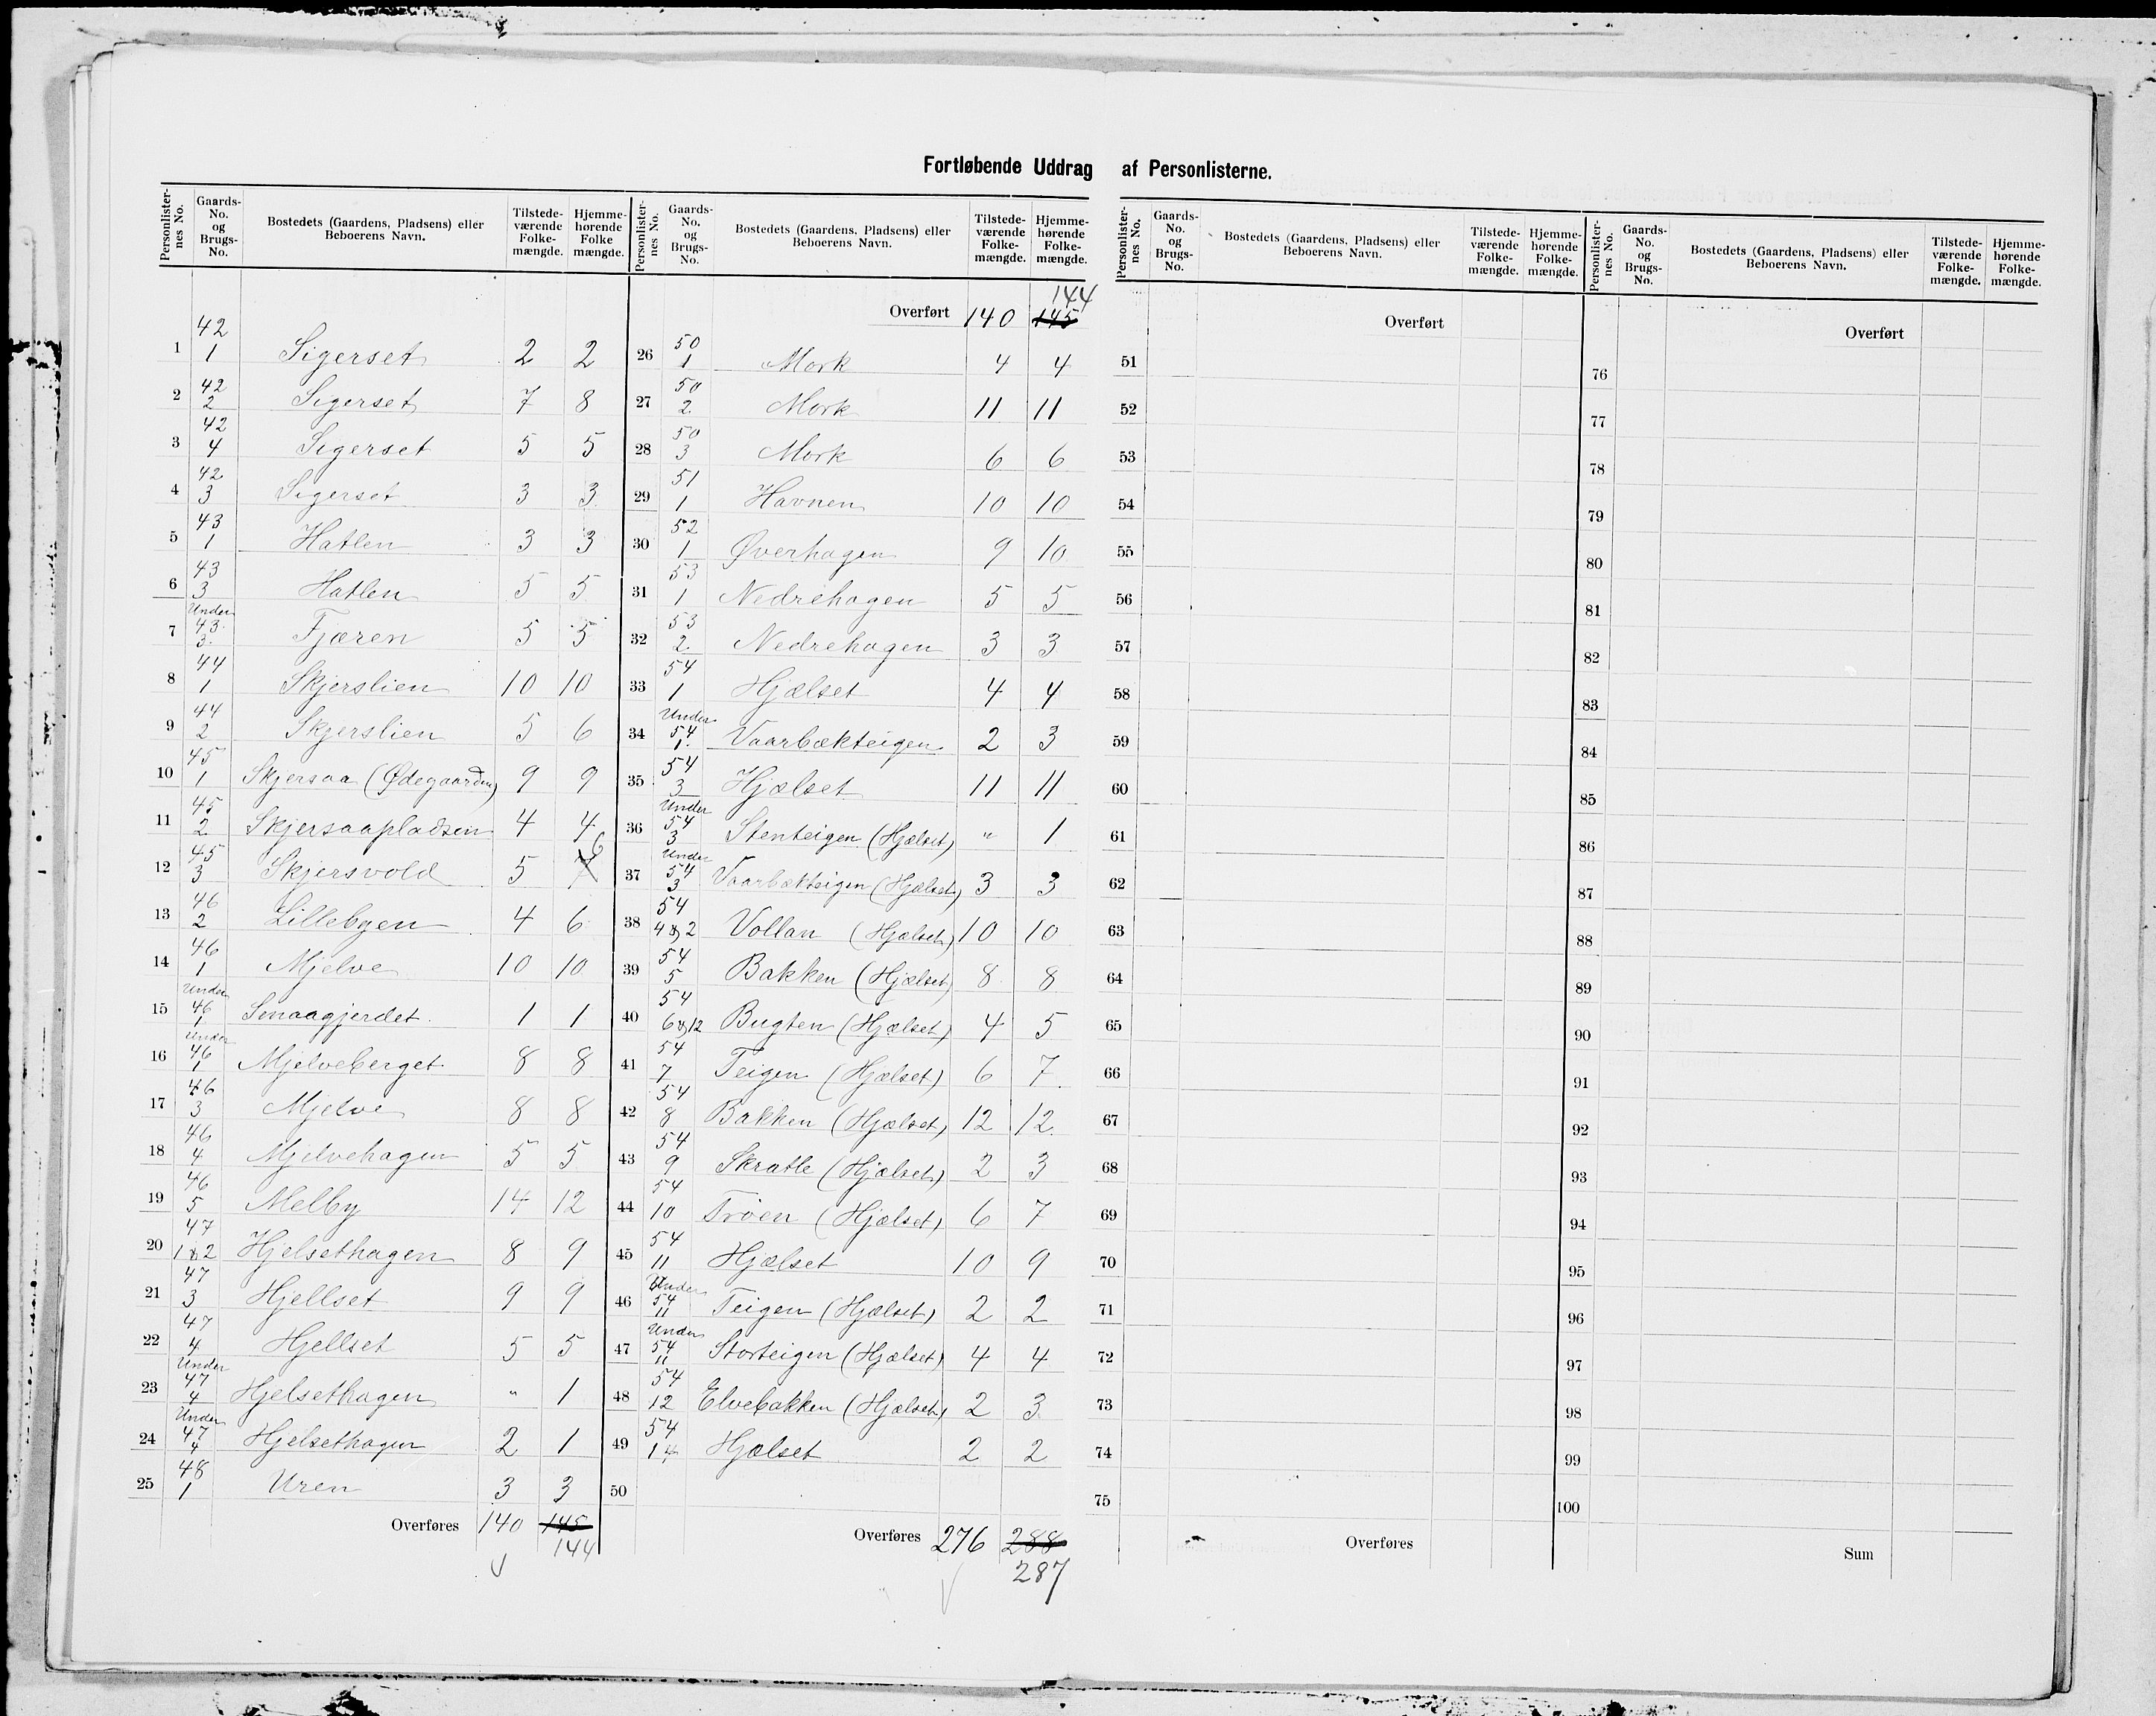 Fortløbende Uddrag af Personlisterne.
Personlister-nes No. Gaards-No. og Brugs-No. Bostedets (Gaardens, Pladsens) eller Beboerens Navn. Tilstede-værende Folke-mængde. Hjemme-hørende Folke mængde.
1 42 1 Sigerset 2 2
2 42 2 Sigerset 7 8
3 42 4 Sigerset 5 5
4 42 3 Sigerset 3 3
5 43 1 Hatlen 3 3
6 43 3 Hatlen 5 5
7 Under 43 3 Fjæren 5 5
8 44 1 Skjerslien 10 10
9 44 2 Skjerslien 5 6
10 45 1 Skjersaa (Ødegaarden) 9 9
11 45 2 Skjersaapladsen 4 4
12 45 3 Skjersvold 5 7 6
13 46 2 Lillebyen 4 6
14 46 1 Mjelve 10 10
15 Under 46 1 Smaagjerdet 1 1
16 Under 46 1 Mjelveberget 8 8
17 46 3 Mjelve 8 8
18 46 4 Mjelvehagen 5 5
19 46 5 Melby 14 12
20 47 1 & 2 Hjelsethagen 8 9
21 47 3 Hjellset 9 9
22 47 4 Hjellset 5 5
23 Under 47 4 Hjelsethagen " 1
24 Under 47 4 Hjelsethagen 2 1
25 48 1 Uren 3 3
Overføres 140 145
144
Personlister-nes No. Gaards-No. og Brugs-No. Bostedets (Gaardens, Pladsens) eller Beboerens Navn. Tilstede-værende Folke-mængde. Hjemme-hørende Folke-mængde.
144
Overført 140 145
26 50 1 Mork 4 4
27 50 2 Mork 11 11
28 50 3 Mork 6 6
29 51 1 Havnen 10 10
30 52 1 Øverhagen 9 10
31 53 1 Nedrehagen 5 5
32 53 2 Nedrehagen 3 3
33 54 1 Hjælset 4 4
34 Under 54 1 Vaarbækteigen 2 3
35 54 3 Hjælset 11 11
36 Under 54 3 Stenteigen (Hjælset) " 1
37 Under 54 3 Vaarbækteigen (Hjælset) 3 3
38 54 4 & 2 Vollan (Hjælset) 10 10
39 54 5 Bakken (Hjælset) 8 8
40 54 6 & 12 Bugten (Hjælset) 4 5
41 54 7 Teigen (Hjælset) 6 7
42 54 8 Bakken (Hjælset) 12 12
43 54 9 Skratle (Hjælset) 2 3
44 54 10 Trøen (Hjælset) 6 7
45 54 11 Hjælset 10 9
46 Under 54 11 Teigen (Hjælset) 2 2
47 Under 54 11 Storteigen (Hjælset) 4 4
48 54 12 Elvebakken (Hjælset) 2 3
49 54 14 Hjælset 2 2
50
Overføres 276 288
287
Personlister-nes No. Gaards-No. og Brugs-No. Bostedets (Gaardens, Pladsens) eller Beboerens Navn. Tilstede-værende Folke-mængde. Hjemme-hørende Folke-mængde.
Overført
51
52
53
54
55
56
57
58
59
60
61
62
63
64
65
66
67
68
69
70
71
72
73
74
75
Overføres
Personlister-nes No. Gaards-No. og Brugs-No. Bostedets (Gaardens, Pladsens) eller Beboerens Navn. Tilstede-værende Folke-mængde. Hjemme-hørende Folke-mængde.
Overført
76
77
78
79
80
81
82
83
84
85
86
87
88
89
90
91
92
93
94
95
96
97
98
99
100
Sum